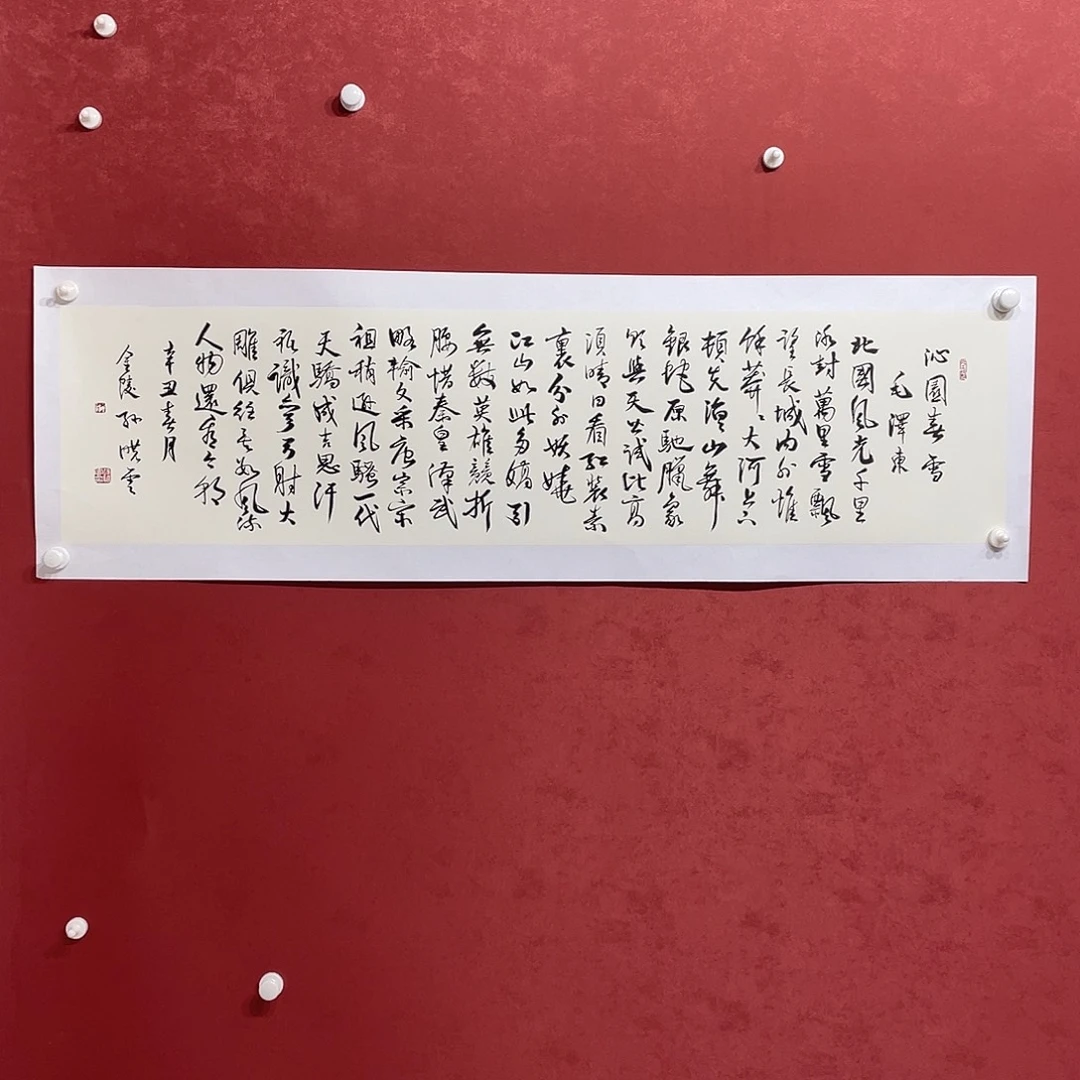 沁園春雪
毛澤東
北國風光千里
冰封萬里雪飄
望長城内外惟
餘莽々大河上下
頓失滔々山舞
銀蛇原馳臘象
欲與天公試比高
須晴日看紅裝素
裹分外妖嬈
江山如此多嬌引
無數英雄競折
腰惜秦皇漢武
略輸文采唐宗宋
祖稍遜風騷一代
天驕成吉思汗
祇識彎弓射大
雕俱往矣數風流
人物還看今朝
辛丑春月
金陵孫洪雲